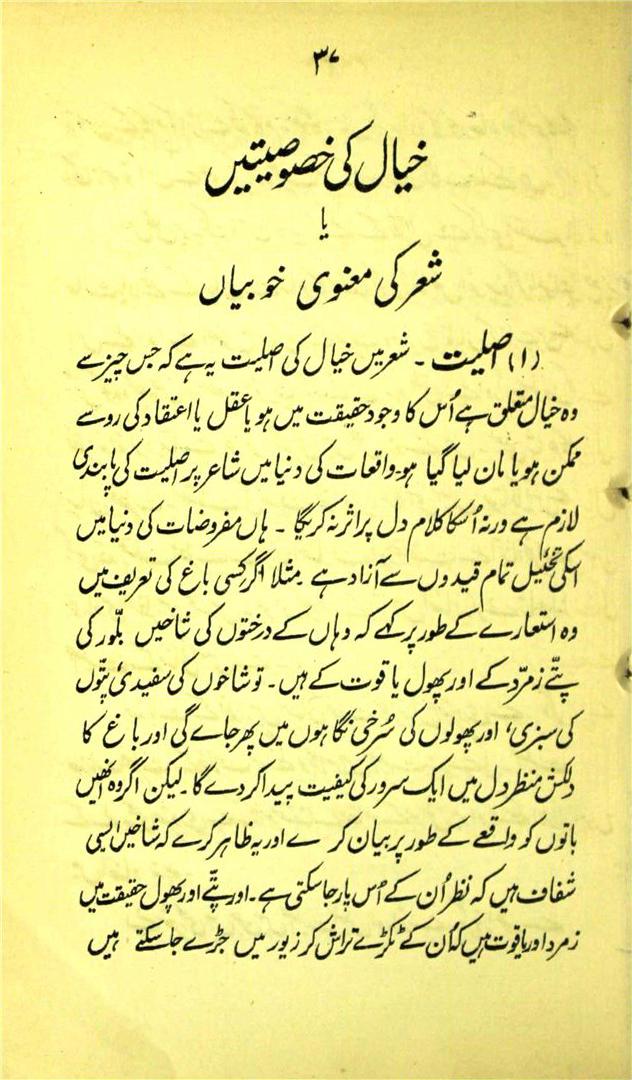 ۳۷
خیال کی خصوصیتیں
یا
شعر کی معنوی خوبیاں
(۱) اصلیت ۔ شعر میں خیال کی اصلیت یہ ہے کہ جس چیز سے
وہ خیال متعلق ہے اُس کا وجود حقیقت میں ہو یا عقل یا اعتقاد کی رو سے
ممکن ہو یا مان لیا گیا ہو۔ واقعات کی دنیا میں شاعر پر اصلیت کی پابندی
لازم ہے ورنہ اُسکا کلام دل پر اثر نہ کریگا ۔ ہاں مفروضات کی دنیا میں
اسکی تخئیل تمام قیدوں سے آزاد ہے ۔ مثلا اگر کسی باغ کی تعریف میں
وہ استعارے کے طور پر کہے کہ وہاں کے درختوں کی شاخیں بلّور کی
پتّے زمرّد کے اور پھول یاقوت کے ہیں۔ تو شاخوں کی سفیدی، پتّوں
کی سبزی، اور پھولوں کی سُرخی نگاہوں میں پھر جاے گی اور باغ کا
دلکش منظر دل میں ایک سرور کی کیفیت پیدا کر دے گا ۔ لیکن اگر وہ انھیں
باتوں کو واقعے کے طور پر بیان کرے اور یہ ظاہر کرے کہ شاخیں ایسی
شفاف ہیں کہ نظر اُن کے اُس پار جا سکتی ہے۔ اور پتّے اور پھول حقیقت میں
زمرد اور یاقوت ہیں کہ اُن کے ٹکڑے تراش کر زیور میں جڑے جا سکتے ہیں